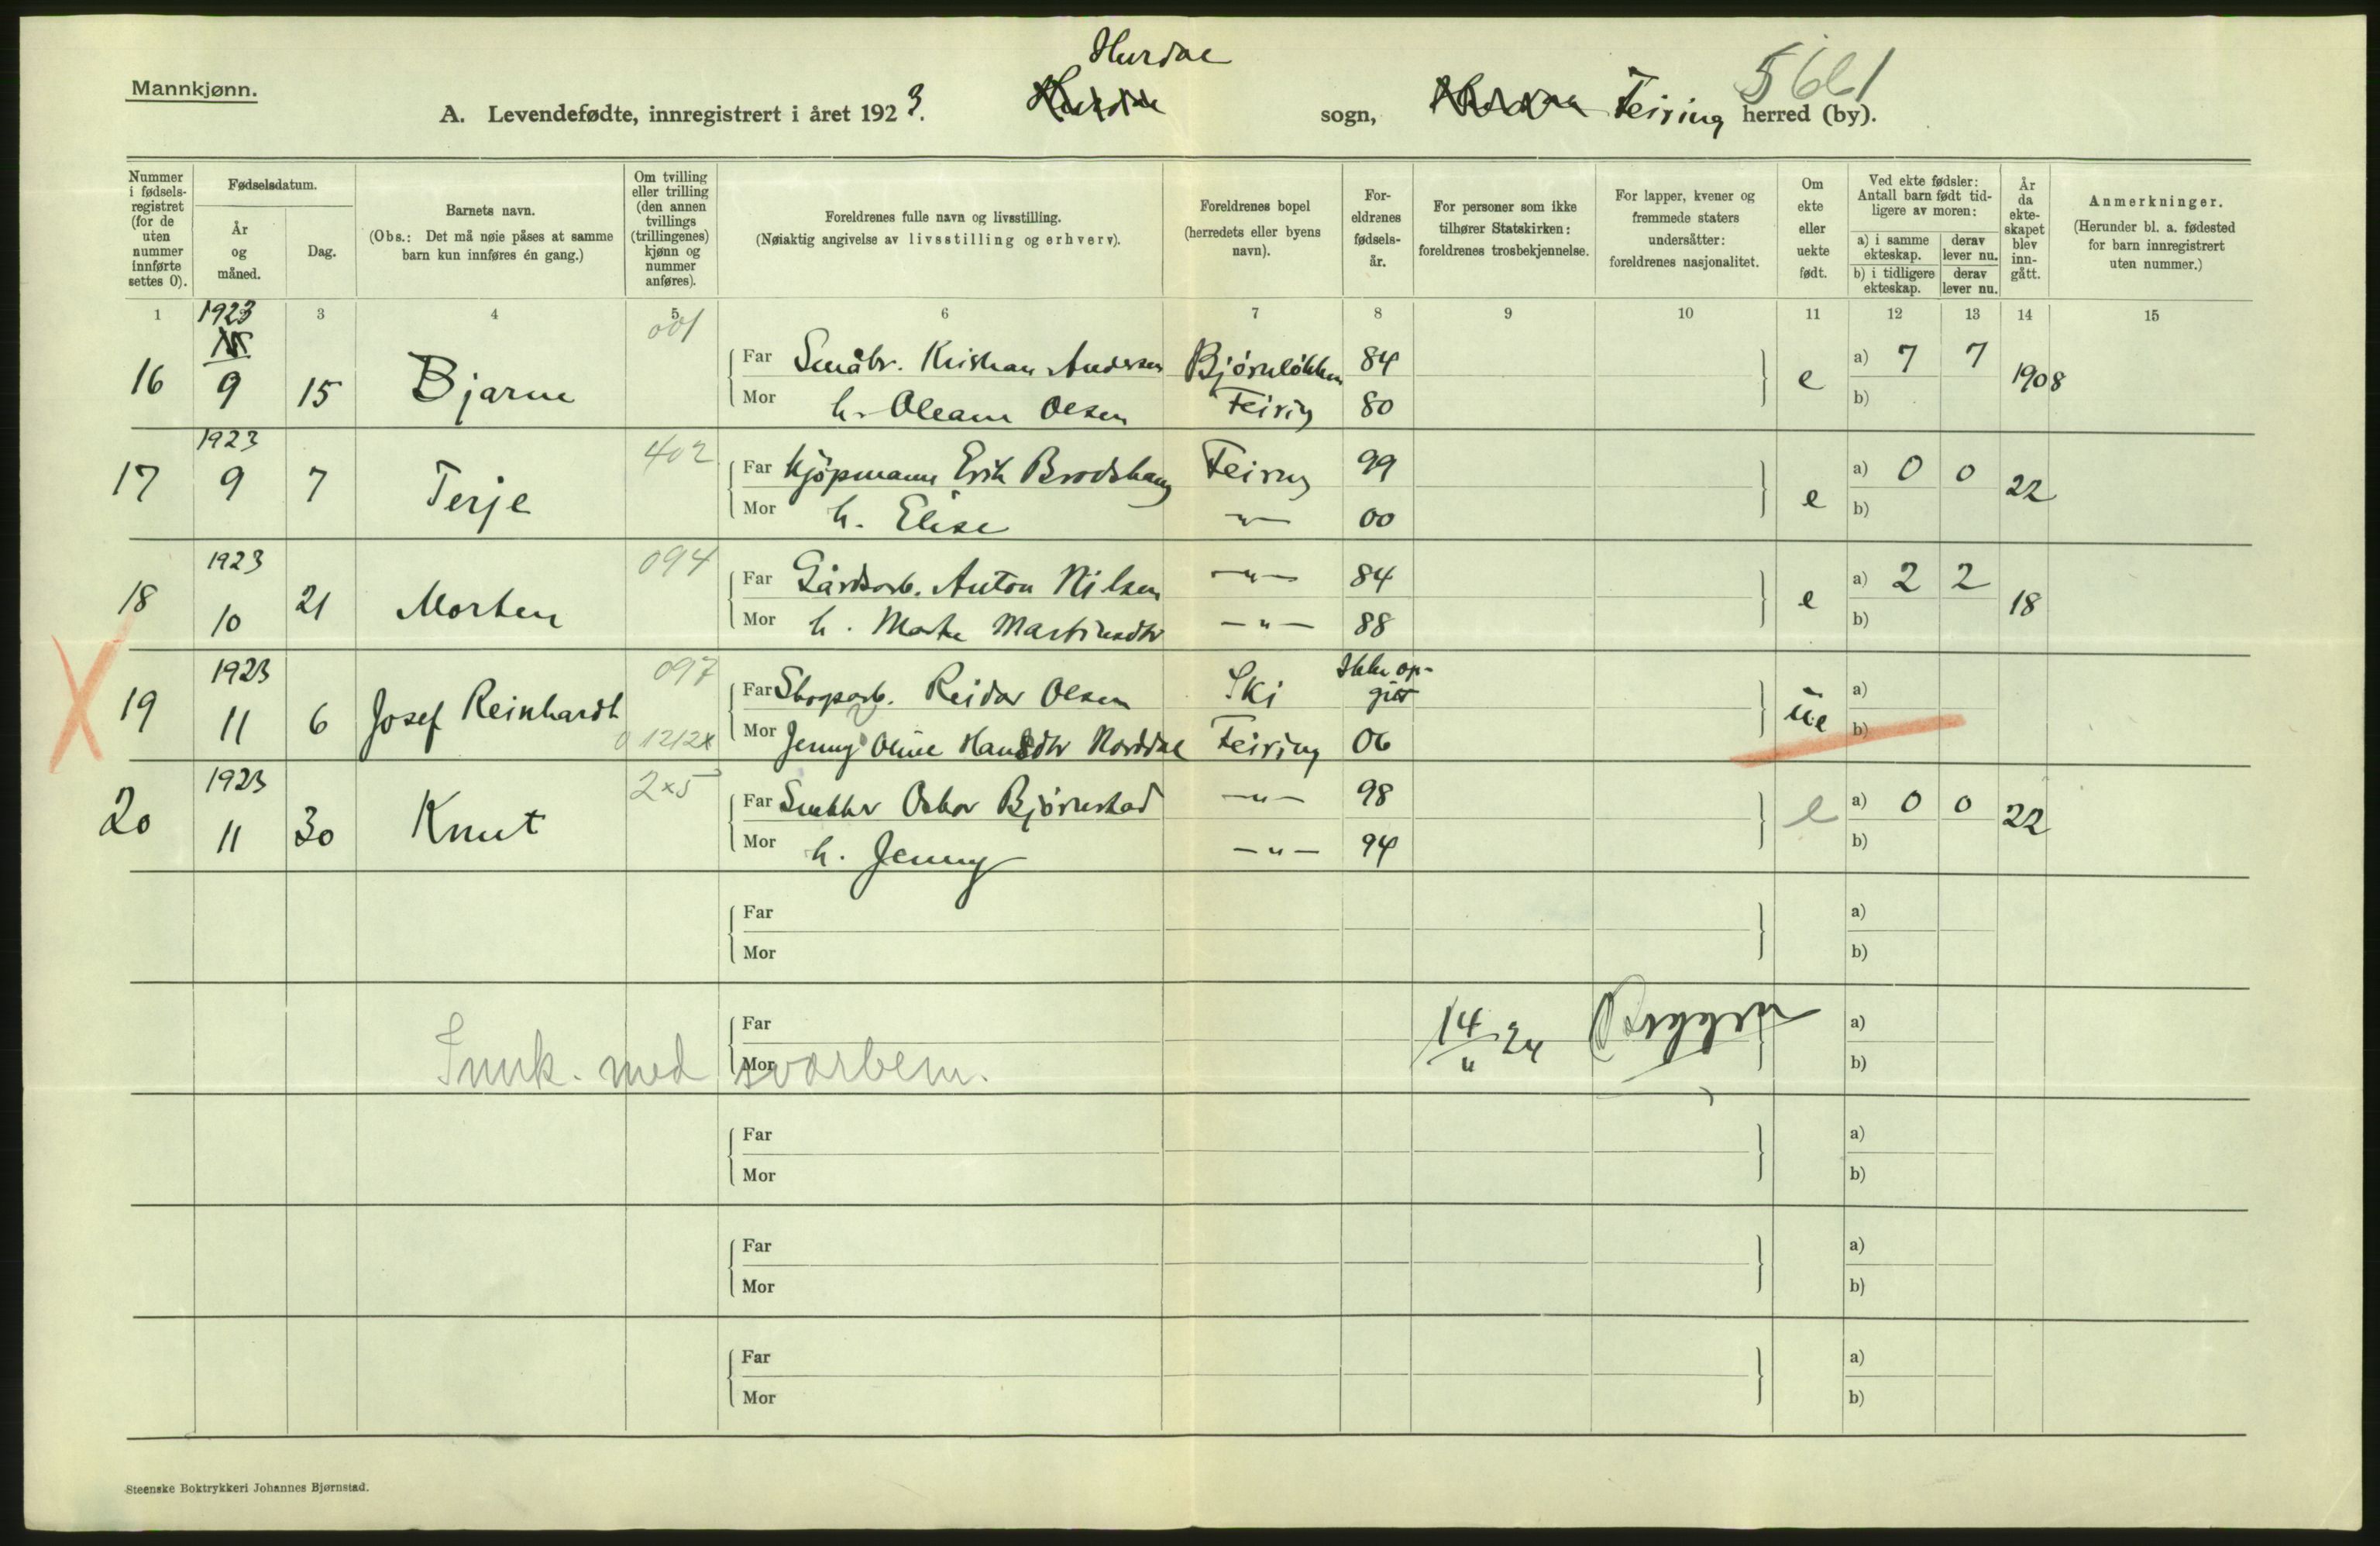 Mannkjønn.
Hurdal
5661
A. Levendefødte, innregistrert i året 1923. sogn, Feiring herred (by).
Nummer i fødselsregistret (for de uten nummer innførte settes 0).
Fødselsdatum.
År og måned.
Dag.
Barnets navn.
(Obs.: Det må nøie påses at samme barn kun innføres én gang.)
Om tvilling eller trilling (den annen tvillings (trillingenes) kjønn og nummer anføres).
Foreldrenes fulle navn og livsstilling.
(Nøiaktig angivelse av livsstilling og erhverv).
Foreldrenes bopel (herredets eller byens navn).
Foreldrenes fødselsår.
For personer som ikke tilhører Statskirken: foreldrenes trosbekjennelse.
For lapper, kvener og fremmede staters undersåtter: foreldrenes nasjonalitet.
Om ekte eller uekte født.
Ved ekte fødsler: Antall barn født tidligere av moren:
a) i samme ekteskap. derav lever nu.
b) i tidligere ekteskap. derav lever nu.
År da ekteskapet blev inngått.
Anmerkninger.
(Herunder bl. a. fødested for barn innregistrert uten nummer.)
1 3 4 5 6 7 8 9 10 11 12 13 14 15
16 1923 9 15 Bjarne 001 Far Småbr. Kristian Andersen Bjørnløkken 84 e a) 7 7 1908
Mor h. Oleane Olsen Feiring 80 b)
17 1923 9 7 Terje 402 Far Kjøpmann Erik Brodshaug Feiring 99 e a) 0 0 22
Mor h. Elise —"— 00 b)
18 1923 10 21 Morten 094 Far Gårdsarb. Anton Nilsen —"— 84 e a) 2 2 18
Mor h. Marte Martinsdtr —"— 88 b)
19 1923 11 6 Josef Reinhardt 097 Far Skogsarb. Reidar Olsen Ski Ikke opgitt u.e a)
01212x Mor Jenny Oline Hansdtr Norddal Feiring 06 b)
20 1923 11 30 Knut 2x5 Far Snekker Oskar Bjørnstad —"— 98 e a) 0 0 22
Mor h. Jenny —"— 94 b)
Far a)
Mor b)
Far 14/11 24 a)
Mor b)
med svarbem.
Far a)
Mor b)
Far a)
Mor b)
Far a)
Mor b)
Steenske Boktrykkeri Johannes Bjørnstad.